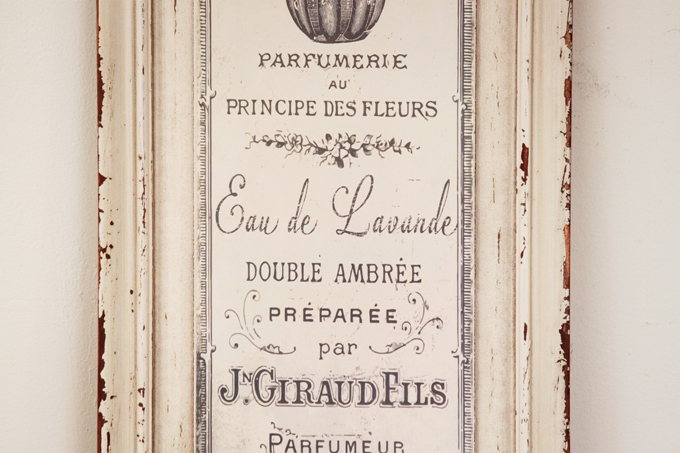 PARFUMERIE
AU
PRINCIPE DES FLEURS
Eau de Lavande
DOUBLE AMBRÉE
PRÉPARÉE
par
JN. GIRAUD FILS
PARFUMEUR